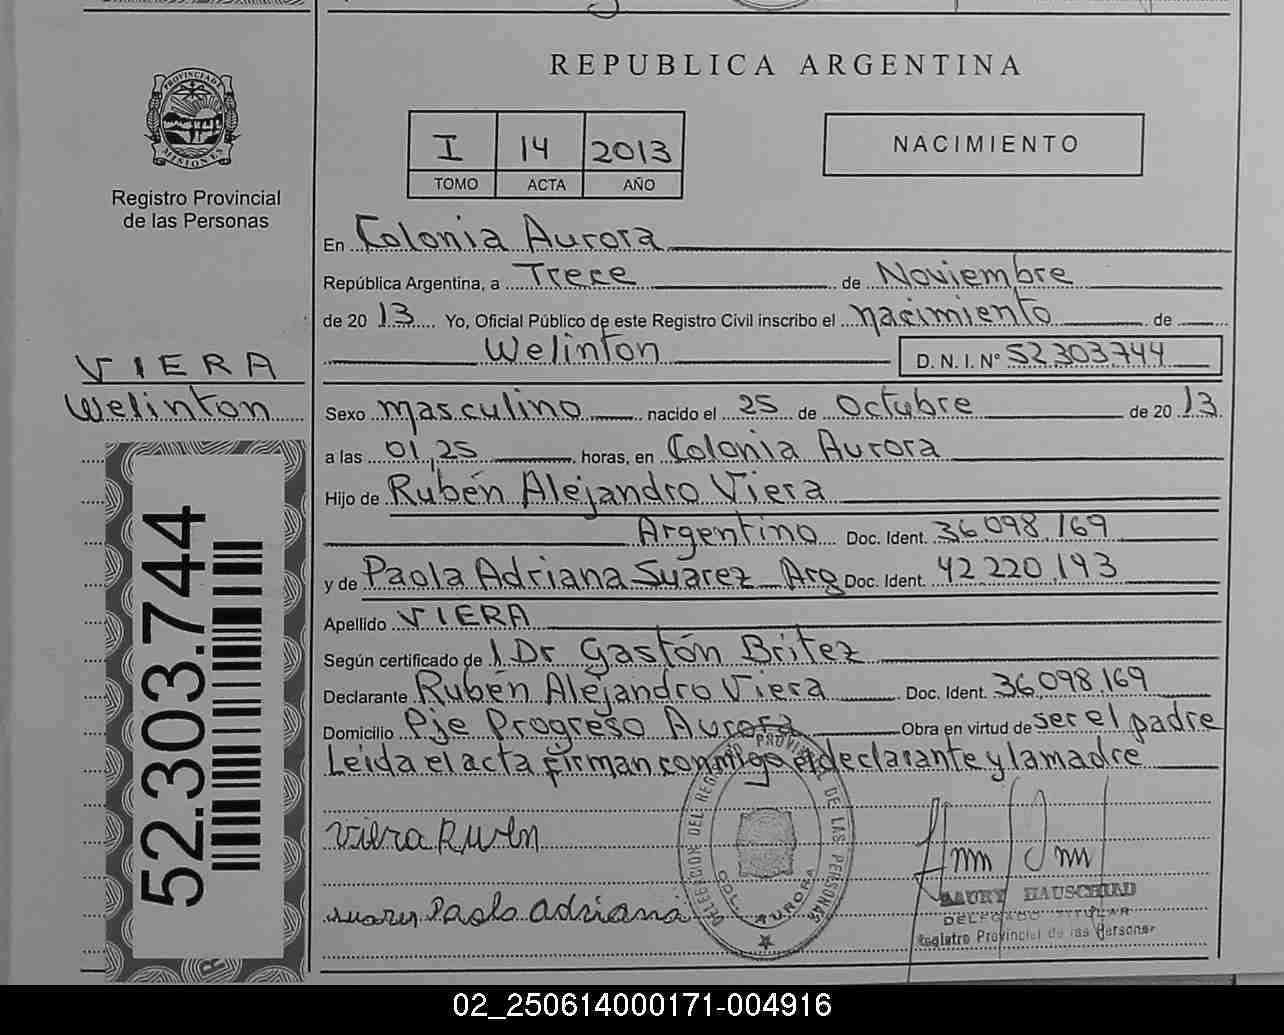 REPUBLICA ARGENTINA
PROVINCIA DE MISIONES
Registro Provincial
de las Personas
I 14 2013
TOMO ACTA AÑO
NACIMIENTO
En Colonia Aurora
República Argentina, a Trece de Noviembre
de 20 13 Yo, Oficial Público de este Registro Civil inscribo el nacimiento de
Welinton D. N. I. Nº 52.303.744
VIERA
Welinton
Sexo masculino nacido el 25 de Octubre de 20 13
a las 01,25 horas, en Colonia Aurora
Hijo de Rubén Alejandro Viera
Argentino Doc. Ident. 36.098.169
y de Paola Adriana Suarez Arg Doc. Ident. 42.220.193
Apellido VIERA
Según certificado de l Dr Gastón Britez
Declarante Rubén Alejandro Viera Doc. Ident. 36.098.169
Domicilio Pje Progreso Aurora Obra en virtud de ser el padre
Leida el acta firman conmigo el declarante y la madre
52.303.744
Viera Ruben
suares Paola adriana
DELEGACION DEL REGISTRO PROVINCIAL DE LAS PERSONAS
COL. AURORA
HAUSCHILD
DELEGADO TITULAR
Registro Provincial de las Personas
02_250614000171-004916